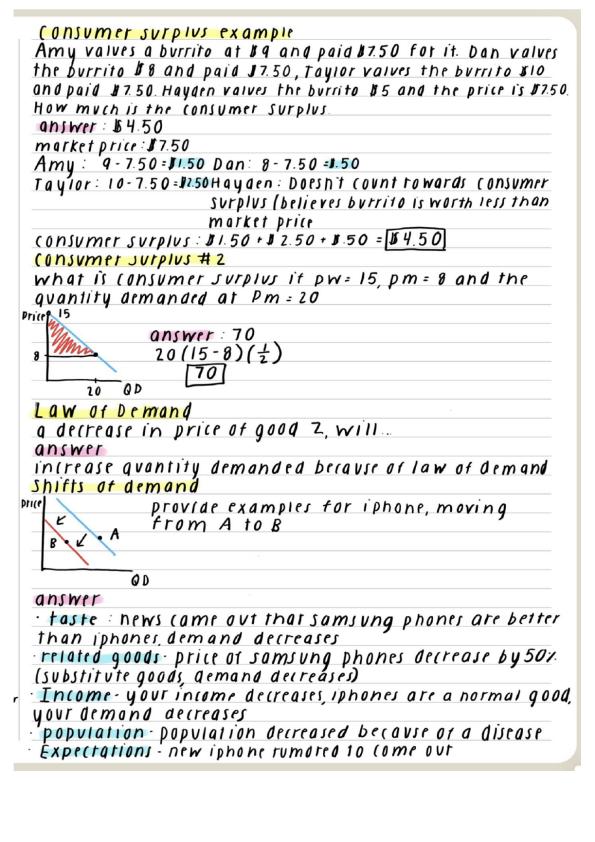 Consumer surplus example
Amy values a burrito at $9 and paid $7.50 for it. Dan values
the burrito $8 and paid $7.50, Taylor values the burrito $10
and paid $7.50. Hayden values the burrito $5 and the price is $7.50.
How much is the consumer surplus.
answer : $4.50
market price : $7.50
Amy : 9 - 7.50 = $1.50 Dan : 8 - 7.50 = $.50
Taylor : 10 - 7.50 = $2.50 Hayden : Doesn't count towards consumer
surplus (believes burrito is worth less than
market price
consumer surplus : $1.50 + $2.50 + $.50 = $4.50
Consumer surplus #2
what is consumer surplus if pw = 15, pm = 8 and the
quantity demanded at Pm = 20
Price 15
answer : 70
8
20 (15 - 8) (1/2)
70
20 QD
Law of Demand
a decrease in price of good Z, will...
answer
increase quantity demanded because of law of demand
Shifts of demand
Price
provide examples for iphone, moving
from A to B
B A
QD
answer
· taste : news came out that samsung phones are better
than iphones, demand decreases
· related goods - price of samsung phones decrease by 50%
(substitute goods, demand decreases)
· Income - your income decreases, iphones are a normal good,
your demand decreases
· population - population decreased because of a disease
· Expectations - new iphone rumored to come out